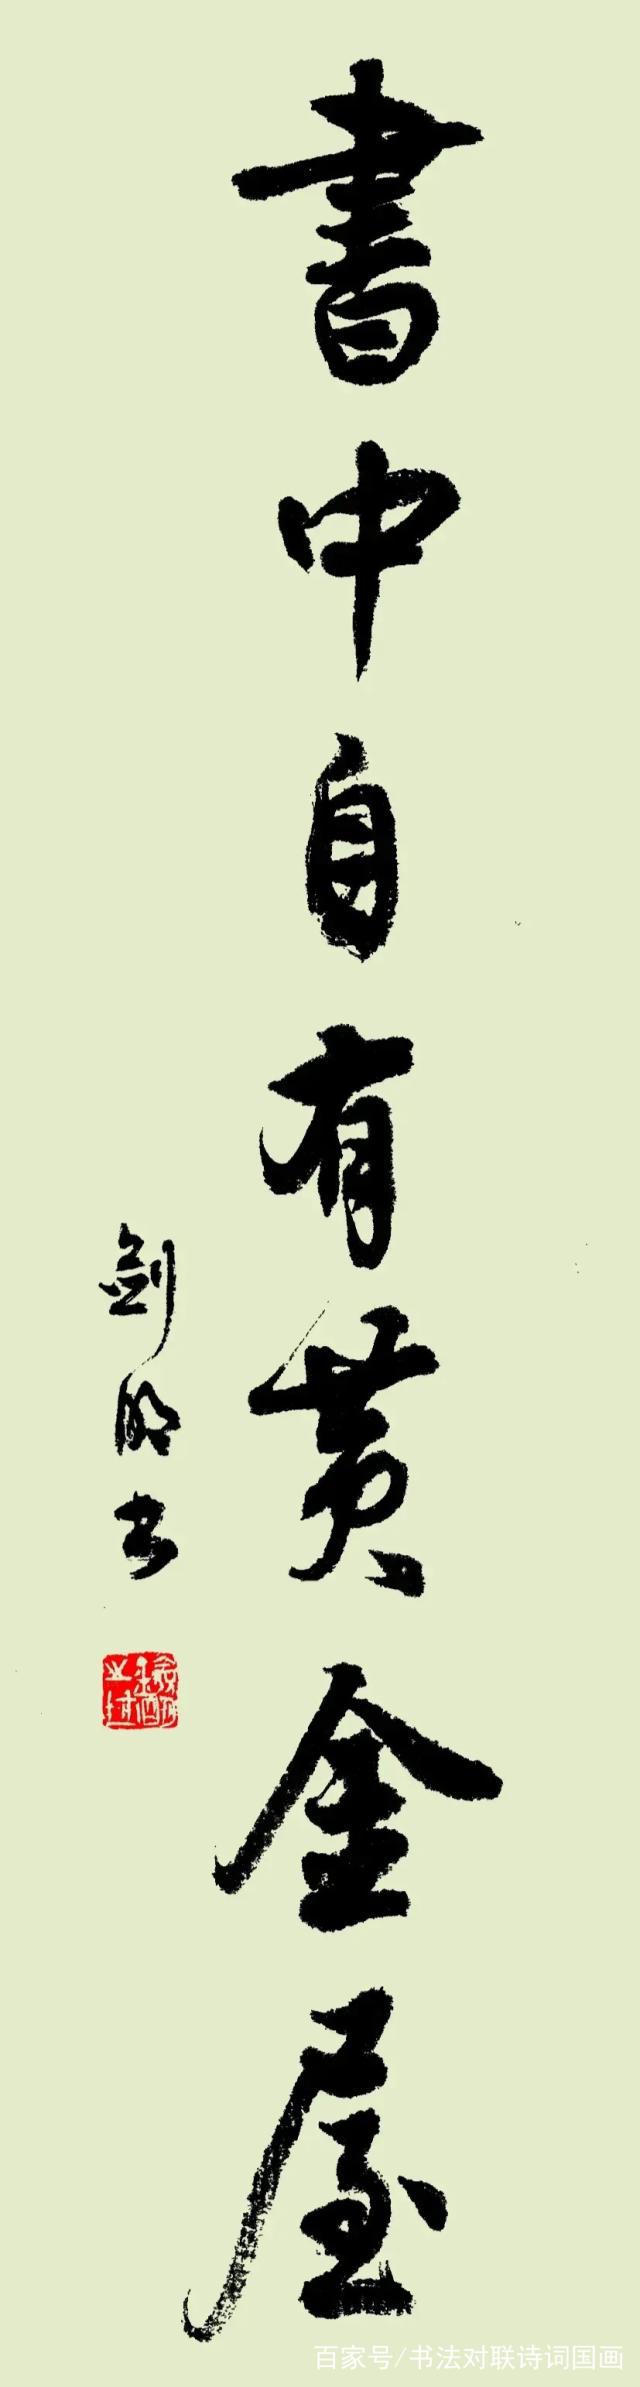 書中自有黄金屋
剑明书
百家号/书法对联诗词国画